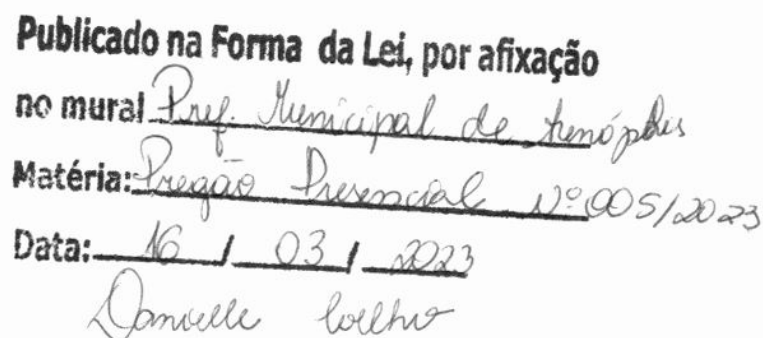 Publicado na Forma da Lei, por afixação
no mural Pref. Municipal de Arenópolis
Matéria: Pregão Presencial Nº 005/2023
Data: 16 / 03 / 2023
Danielle Coelho